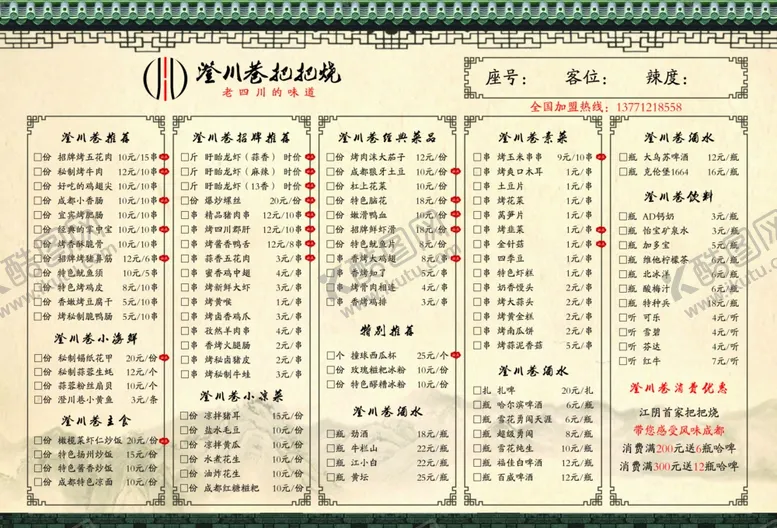 澄川巷把把烧
老四川的味道
座号： 客位： 辣度：
全国加盟热线：13771218558
澄川巷推荐
份 招牌烤五花肉 10元/15串
份 秘制烤牛肉 12元/10串
份 好吃的鸡翅尖 10元/10串
份 成都小香肠 10元/10串
份 宜宾烤肥肠 10元/10串
份 经典的掌中宝 10元/10串
份 烤香酥脆骨 10元/10串
份 招牌烤猪鼻筋 12元/6串
份 特色鱿鱼须 10元/5串
份 特色烤鸡皮 8元/10串
份 香嫩烤豆腐干 5元/10串
份 烤秘制脆鸭肠 5元/10串
澄川巷小海鲜
份 秘制锡纸花甲 20元/份
份 秘制蒜蓉生蚝 12元/个
份 蒜蓉粉丝扇贝 10元/个
份 澄川巷小黄鱼 3元/条
澄川巷主食
份 橄榄菜虾仁炒饭 20元/份
份 特色扬州炒饭 15元/份
份 特色酱香炒饭 10元/份
份 成都特色凉面 10元/份
澄川巷招牌推荐
斤 盱眙龙虾（蒜香） 时价
斤 盱眙龙虾（麻辣） 时价
斤 盱眙龙虾（13香） 时价
份 爆炒螺丝 20元/份
串 精品猪肉串 12元/10串
串 烤四川郡肝 12元/10串
串 烤酱香鸭舌 12元/8串
串 蒜香五花肉 3元/串
串 蜜香鸡中翅 4元/串
串 烤新鲜大虾 3元/串
串 烤黄喉 1元/串
串 烤卤香鸡爪 3元/串
串 孜然羊肉串 4元/串
串 香烤火腿肠 2元/串
串 烤秘卤猪皮 2元/串
串 烤秘制牛蛙 3元/串
澄川巷小凉菜
份 凉拌猪耳 15元/份
份 盐水毛豆 10元/份
份 凉拌黄瓜 10元/份
份 水煮花生 10元/份
份 油炸花生 10元/份
份 成都红糖糍粑 10元/份
澄川巷经典菜品
份 烤肉沫大茄子 12元/份
份 成都狼牙土豆 10元/份
份 杠上花菜 10元/份
份 特色脑花 18元/份
份 嫩滑鸭血 10元/份
份 招牌鲜虾滑 18元/份
份 特色鱿鱼片 8元/份
串 香烤大鸡翅 8元/串
串 香烤知了 5元/串
串 烤骨肉相连 4元/串
串 香烤鸡排 3元/串
特别推荐
个 撞球西瓜杯 25元/个
份 玫瑰糍粑冰粉 10元/份
份 特色醪糟冰粉 10元/份
澄川巷酒水
瓶 劲酒 18元/瓶
瓶 牛栏山 22元/瓶
瓶 江小白 22元/瓶
瓶 黄坛 25元/瓶
澄川巷素菜
串 烤玉米串串 9元/10串
串 烤爽口木耳 1元/串
串 土豆片 1元/串
串 烤花菜 1元/串
串 莴笋片 1元/串
串 烤韭菜 1元/串
串 金针菇 1元/串
串 四季豆 1元/串
串 特色烤糕 1元/串
串 奶香馒头 2元/串
串 烤大蒜头 2元/串
串 烤黄金糕 2元/串
串 烤南瓜饼 2元/串
串 烤蒜泥香菇 5元/串
澄川巷酒水
扎 扎啤 20元/扎
瓶 哈尔滨啤酒 6元/瓶
瓶 雪花勇闯天涯 6元/瓶
瓶 超级勇闯 8元/瓶
瓶 雪花纯生 10元/瓶
瓶 福佳白啤酒 12元/瓶
瓶 百威啤酒 12元/瓶
澄川巷酒水
瓶 大乌苏啤酒 12元/瓶
瓶 克伦堡1664 16元/瓶
澄川巷饮料
瓶 AD钙奶 3元/瓶
瓶 怡宝矿泉水 3元/瓶
瓶 加多宝 5元/瓶
瓶 维他柠檬茶 6元/瓶
瓶 北冰洋 6元/瓶
瓶 酸梅汁 6元/瓶
瓶 特种兵 18元/瓶
听 可乐 4元/听
听 雪碧 4元/听
听 芬达 4元/听
听 红牛 7元/听
澄川巷消费优惠
江阴首家把把烧
带您感受风味成都
消费满200元送6瓶哈啤
消费满300元送12瓶哈啤